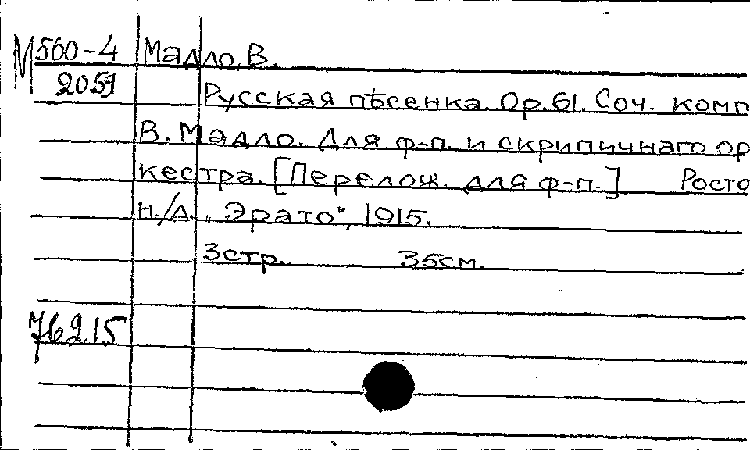 М 560-4 Мадло, В.
2059
Русская пѣсенка. Ор. 61. Соч. комп
В. Мадло. Для ф-п. и скрипичнаго ор
кестра. [Перелож. для ф-п.] Росто
н/Д. „Эрато", 1915.
3 стр. 35 см.
76215